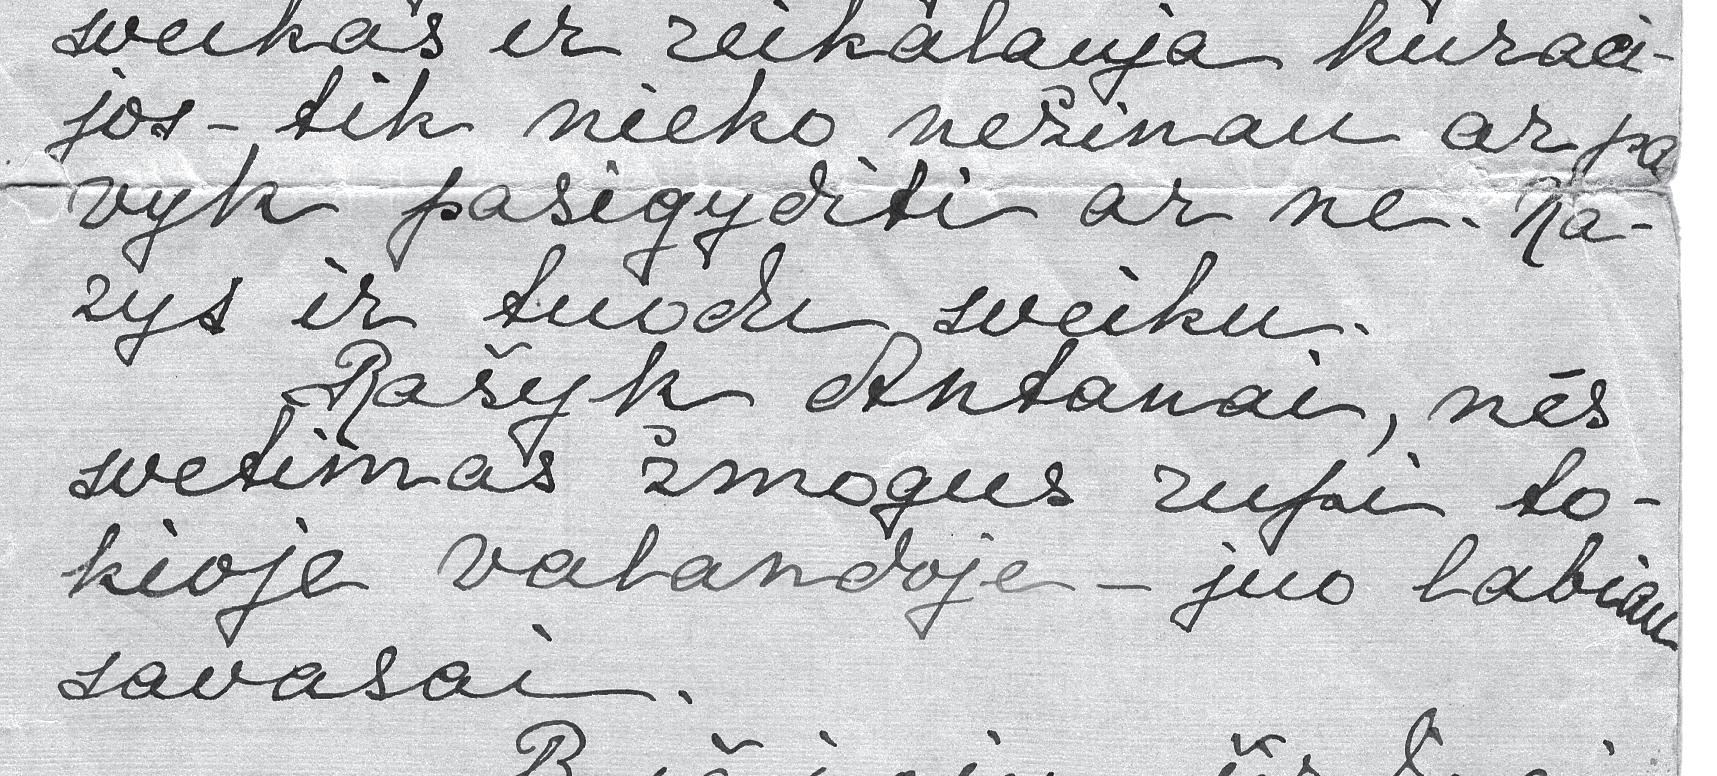 sveikas ir reikalauja kuraci-
jos - tik nieko nežinau ar pa
vyk pasigyditi ar ne. Ka-
zys ir tuodu sveiku.
Rašyk Antanai, nės
svetimas žmogus rupi to-
kioje valandoje - juo labiau
savasai.